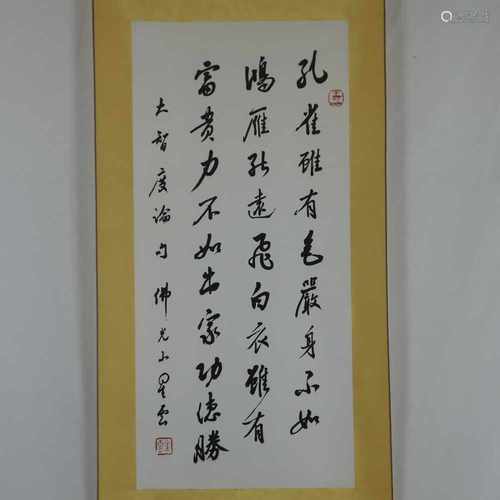 孔雀雖有色嚴身不如
鴻雁能遠飛白衣雖有
富貴力不如出家功德勝
大智度論句佛光山星雲